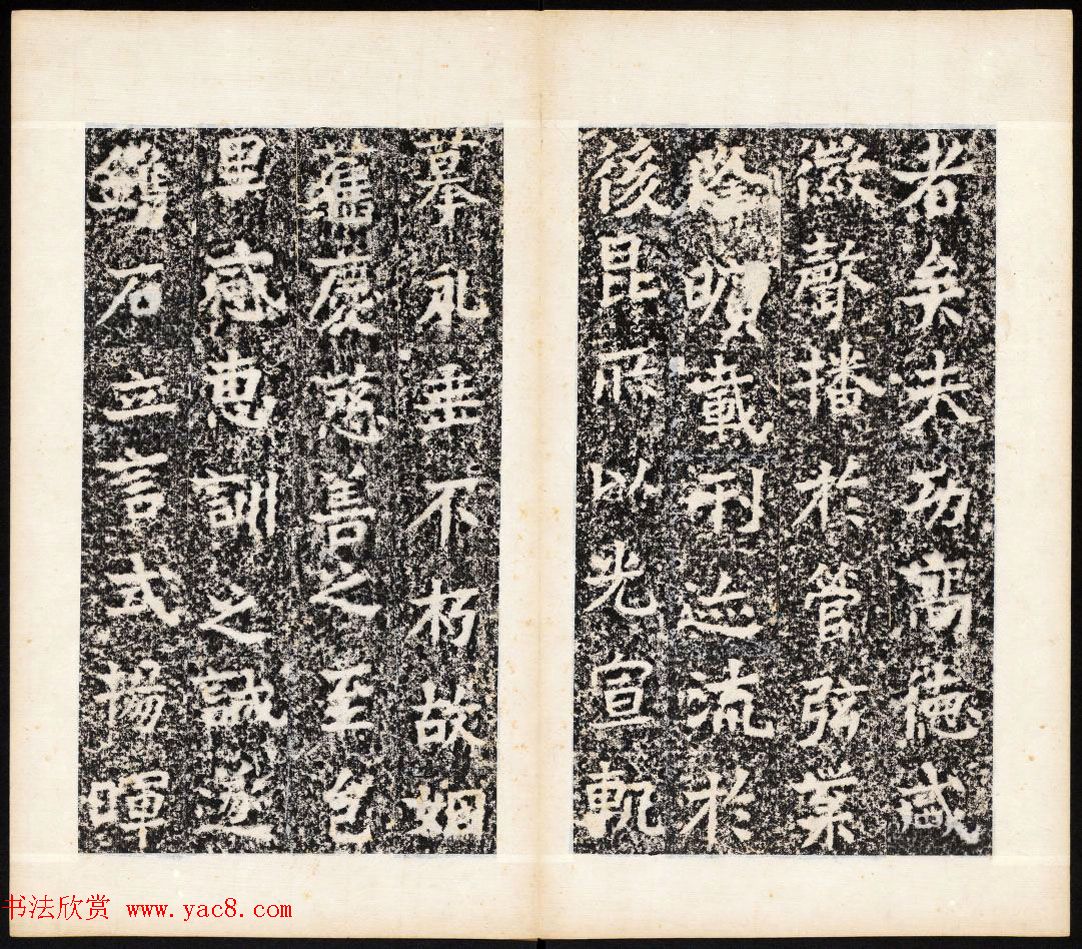 者矣夫功高德盛
徽聲播於管弦業
載刊迹流於
後昆所以光宣軌
摹永垂不朽故姻
舊慶慈善之至邑
里感惠訓之誠遂
鐫石立言式揚暉
书法欣赏 www.yac8.com